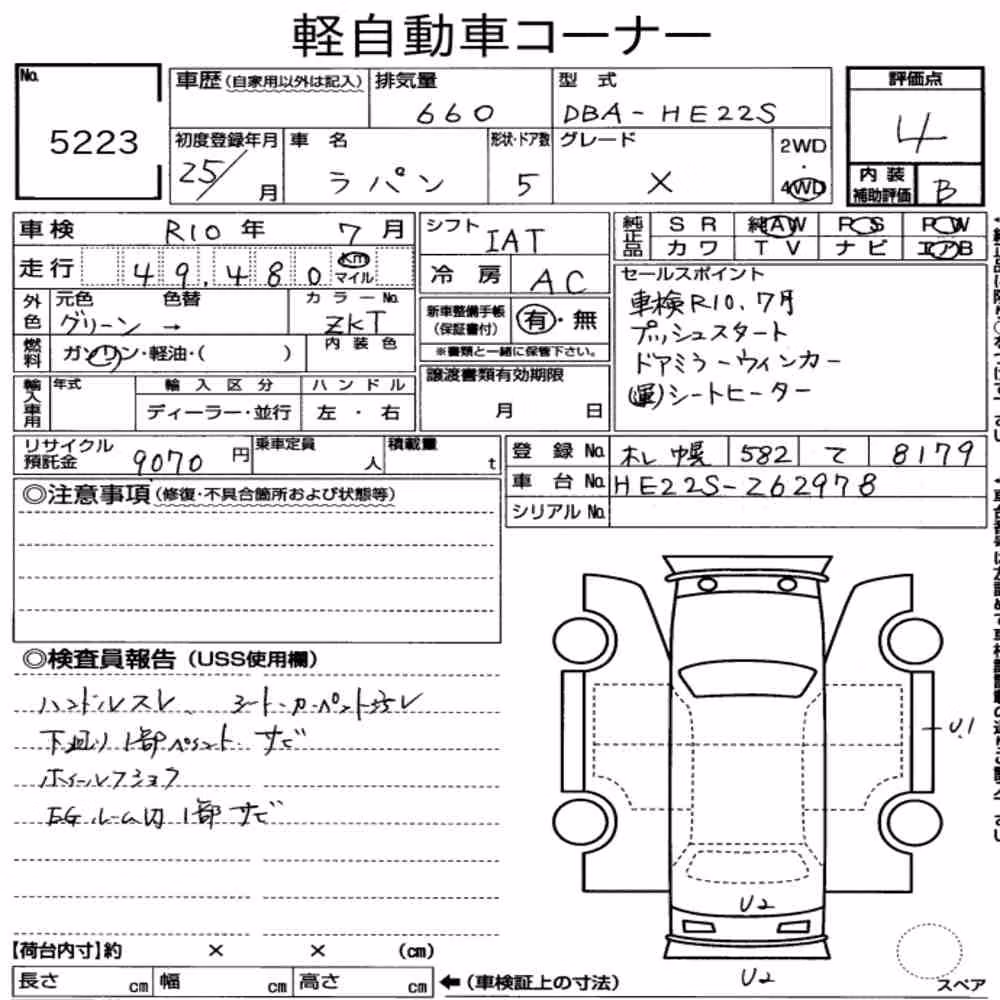 軽自動車コーナー
No.
5223
車歴(自家用以外は記入)
排気量
660
型 式
DBA-HE22S
評価点
4
初度登録年月
25/ 月
車 名
ラパン
形状・ドア数
5
グレード
X
2WD
・
4WD
内装
補助評価
B
車検 R10 年 7 月
走行 49,480 Km マイル
外色
元色 色替 カラーNo.
グリーン → ZKT
燃料
ガソリン・軽油・( )
内装色
輸入車用
年式
輸入区分
ハンドル
ディーラー・並行
左・右
シフト IAT
冷房 AC
新車整備手帳
(保証書付)
有・無
※書類と一緒に保管下さい。
譲渡書類有効期限
月 日
純正品
SR 純AW PS PW
カワ TV ナビ エアB
セールスポイント
車検R10.7月
プッシュスタート
ドアミラーウィンカー
(運)シートヒーター
リサイクル
預託金
9070 円
乗車定員
人
積載量
t
登録No. 札幌 582 て 8179
車台No. HE22S-262978
シリアルNo.
◎注意事項(修復・不具合箇所および状態等)
◎検査員報告(USS使用欄)
ハンドルスレ、シート・カーペット汚レ
下廻り1部ペイント サビ
ホイールフショク
EGルーム内1部サビ
U.1
U2
U2
スペア
【荷台内寸】約 × × (cm)
長さ cm 幅 cm 高さ cm
←(車検証上の寸法)